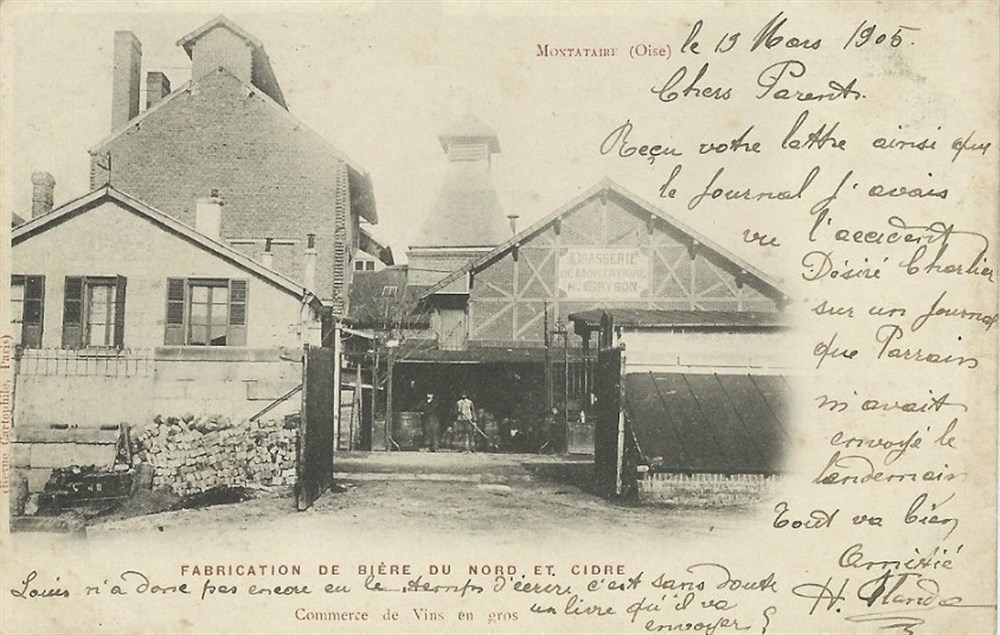 MONTATAIRE (Oise)
le 19 Mars 1905.
Chers Parents.
Reçu votre lettre ainsi que
le journal j'avais
vu l'accident
Désiré Charlier
sur un journal
que Parrain
m'avait
envoyé le
lendemain
Tout va bien
Amitié
H.
BRASSERIE
DE MONTATAIRE
(Revue Cartophile, Paris)
FABRICATION DE BIÈRE DU NORD ET CIDRE
Louis n'a donc pas encore eu le temps d'écrire c'est sans doute
Commerce de Vins en gros
un livre qu'il va
envoyer ?